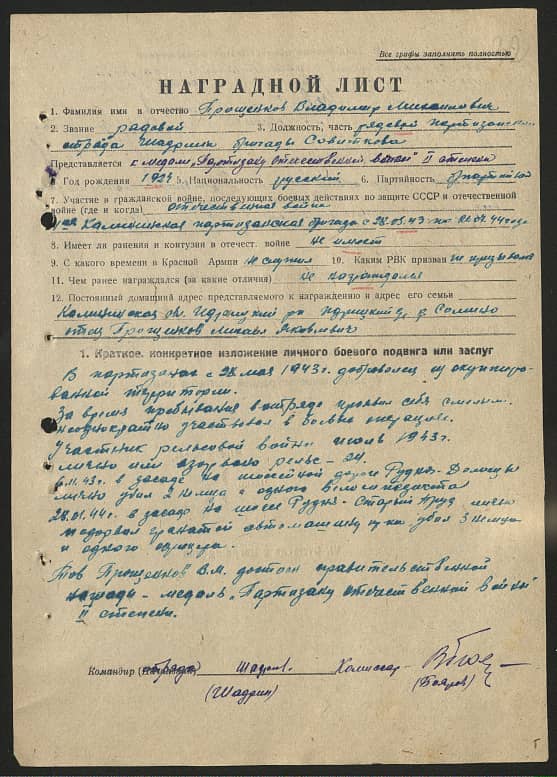 Все графы заполнять полностью
НАГРАДНОЙ ЛИСТ
1. Фамилия имя и отчество Прощенков Владимир Михайлович
2. Звание рядовой 3. Должность, часть рядовой партизан
отряда Шадрина бригады
Представляется к медали "Партизану отечественной войны" II степени
4. Год рождения 1924 5. Национальность русский 6. Партийность б/партийный
7. Участие в гражданской войне, последующих боевых действиях по защите СССР и отечественной
войне (где и когда) отечественная война
Калининская партизанская бригада с 28.05.43 по 44 года
8. Имеет ли ранения и контузии в отечест. войне не имеет
9. С какого времени в Красной Армии не служил 10. Каким РВК призван не призывался
11. Чем ранее награждался (за какие отличия) не награждался
12. Постоянный домашний адрес представляемого к награждению и адрес его семьи
Калининская обл. Идрицкий р-н д.
отец Прощенков Михаил Яковлевич
1. Краткое, конкретное изложение личного боевого подвига или заслуг
В партизанах с 28 мая 1943г. доброволец из оккупиро-
ванной территории.
За время пребывания в отряде проявил себя смелым.
неоднократно участвовал в боевых операциях.
Участник рельсовой войны июль 1943г.
лично им взорвано рельс - 24
6.11.43г. в засаде на шоссейной дороге Рудня-
лично убил 2 немца и одного велосипедиста
28.01.44г. в засаде на шоссе Рудня- Старый лично
подорвал гранатой автомашину убил 3 немца
и одного офицера
Тов Прощенков В.М. достоин правительственной
награды - медаль "Партизану отечественной войны"
II степени.
Командир отряда Комиссар
(Шадрин) (Бояров)